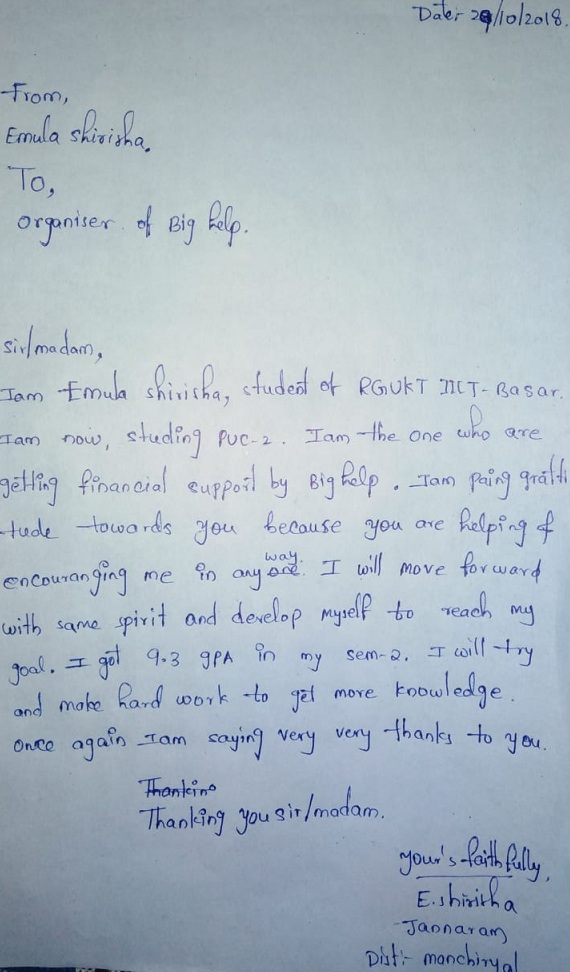 Date:- 29/10/2018.
From,
Emula shirisha.
To,
organiser of Big help.
sir/madam,
Iam Emula shirisha, student of RGUKT IIIT-Basar.
Iam now, studing PUC-2. Iam the one who are
getting financial support by Big help. Iam paing gratti
tude towards you because you are helping &
encouranging me in any one way. I will move forward
with same spirit and develop myself to reach my
goal. I got 9.3 GPA in my sem-2. I will try
and make hard work to get more knowledge.
once again Iam saying very very thanks to you.
Thanking
Thanking you sir/madam.
your's faithfully,
E.shirisha
Jannaram
Dist:- manchiryal